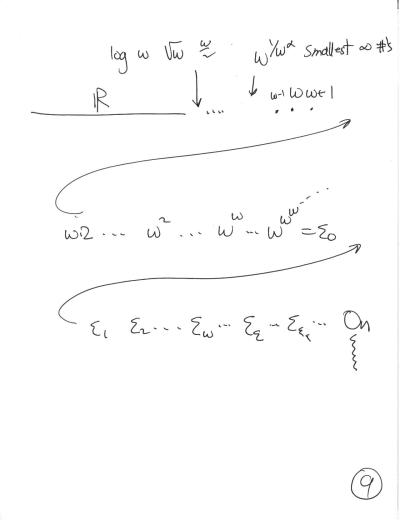 log ω √ω ω/2 ω^{1/ω^α} smallest ∞ #'s
ℝ .... ω-1 ω ω+1
. . .
ω·2 .... ω^2 ... ω^ω ... ω^{ω^{ω^{...}}} = ε_0
ε_1 ε_2 ... ε_ω ... ε_ε ... ε_{ε_ε} ... On
9